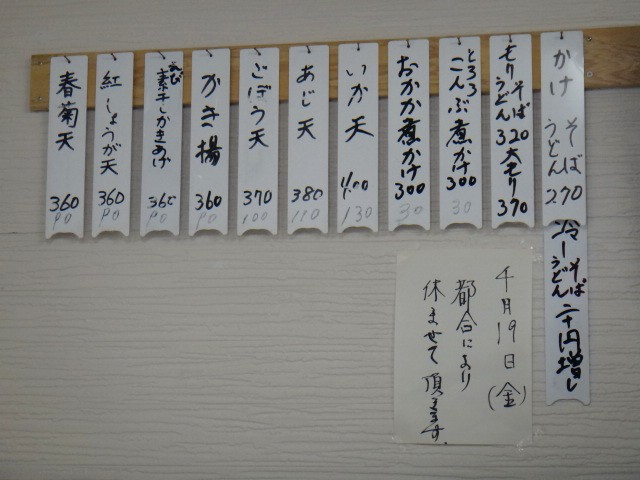 かけ そば うどん 270
冷しそば うどん 二十円増し
もり そば うどん 320 大もり 370
とろろこんぶ煮かけ 300 30
おかか煮かけ 300 30
いか天 400 130
あじ天 380 110
ごぼう天 370 100
かき揚 360 90
えび 素干しかきあげ 360 90
紅しょうが天 360 90
春菊天 360 90
千月19日(金)
都合により
休ませて頂きます。